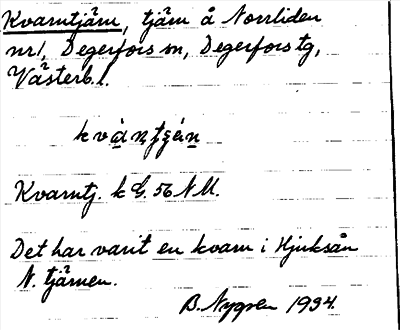 Kvarntjärn, tjärn å Norrliden
nr 1, Degerfors sn, Degerfors tg,
Västerb. l.
Kvarntj. k G. 56 N M.
Det har varit en kvarn i Hjuksån
N. tjärnen.
B. Nygren 1934